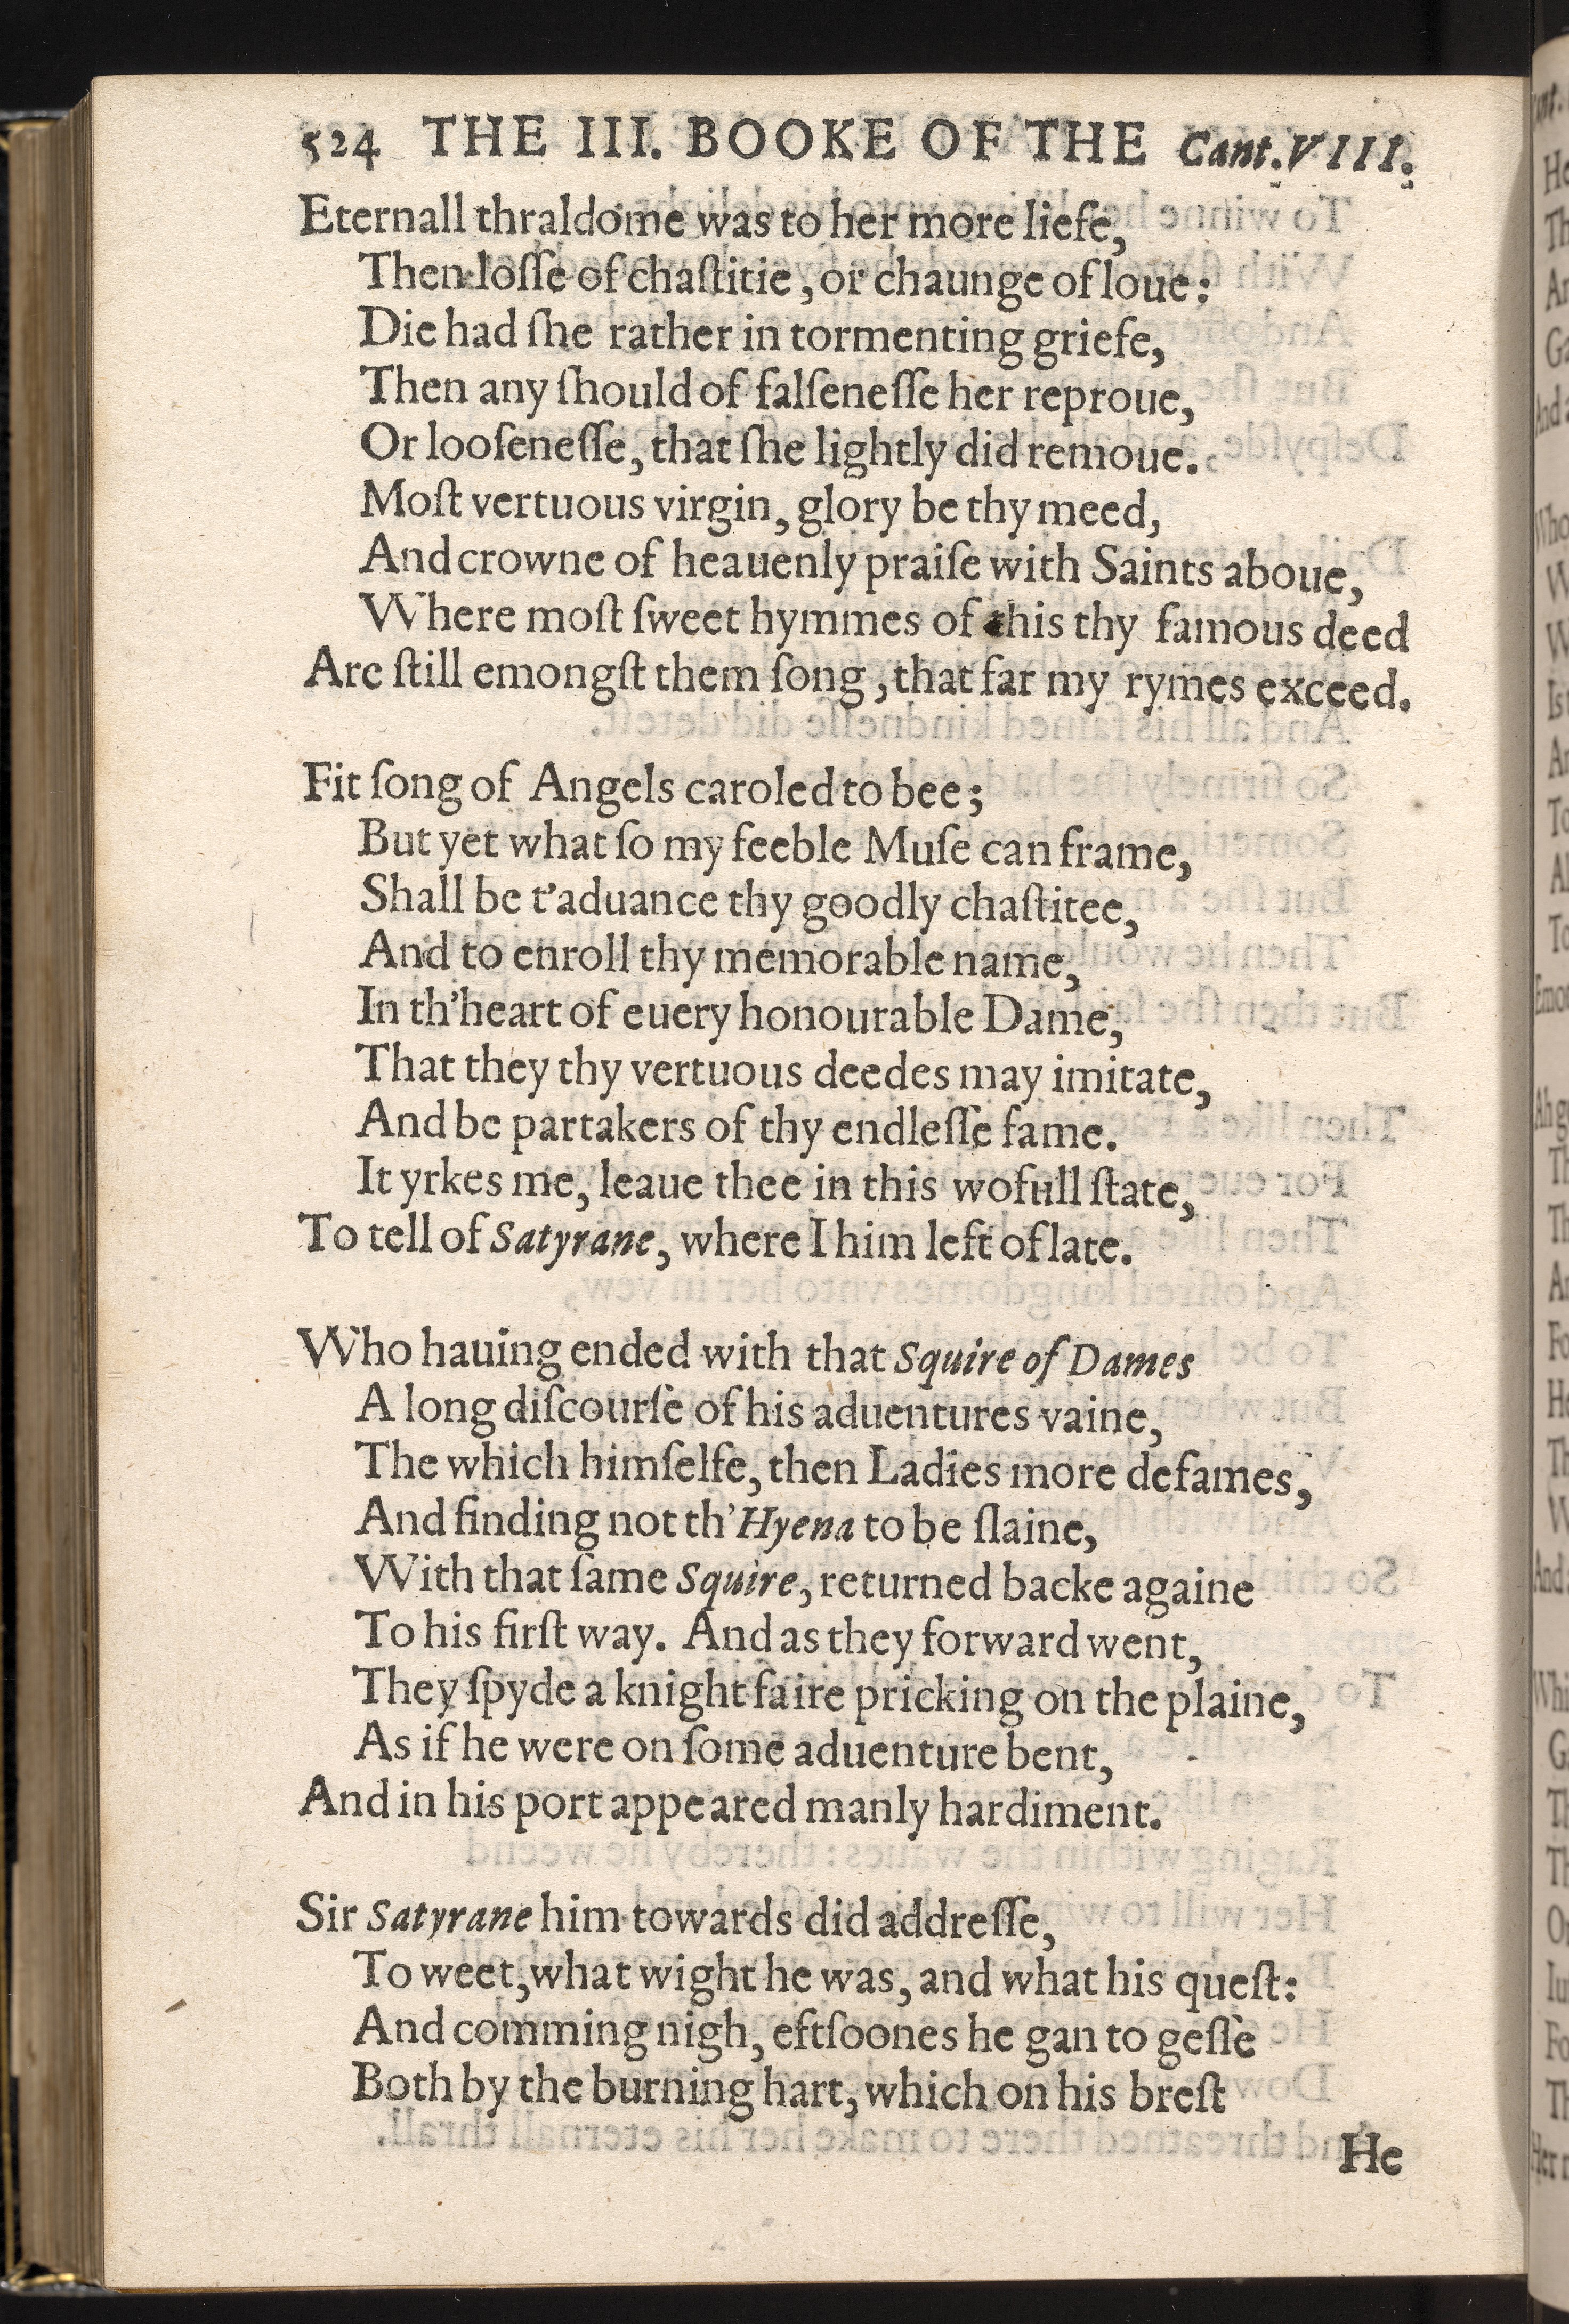 524 THE III. BOOKE OF THE Cant. VIII.
Eternall thraldome was to her more liefe,
Then loſſe of chaſtitie, or chaunge of loue:
Die had ſhe rather in tormenting griefe,
Then any ſhould of falſeneſſe her reproue,
Or looſeneſſe, that ſhe lightly did remoue.
Moſt vertuous virgin, glory be thy meed,
And crowne of heauenly praiſe with Saints aboue,
Where moſt ſweet hymmes of this thy famous deed
Are ſtill emongſt them ſong, that far my rymes exceed.
Fit ſong of Angels caroled to bee;
But yet what ſo my feeble Muſe can frame,
Shall be t'aduance thy goodly chaſtitee,
And to enroll thy memorable name,
In th'heart of euery honourable Dame,
That they thy vertuous deedes may imitate,
And be partakers of thy endleſſe fame.
It yrkes me, leaue thee in this wofull ſtate,
To tell of Satyrane, where I him left of late.
Who hauing ended with that Squire of Dames
A long diſcourſe of his aduentures vaine,
The which himſelfe, then Ladies more defames,
And finding not th'Hyena to be ſlaine,
With that ſame Squire, returned backe againe
To his firſt way. And as they forward went,
They ſpyde a knight faire pricking on the plaine,
As if he were on ſome aduenture bent,
And in his port appeared manly hardiment.
Sir Satyrane him towards did addreſſe,
To weet, what wight he was, and what his queſt:
And comming nigh, eftſoones he gan to geſſe
Both by the burning hart, which on his breſt
He